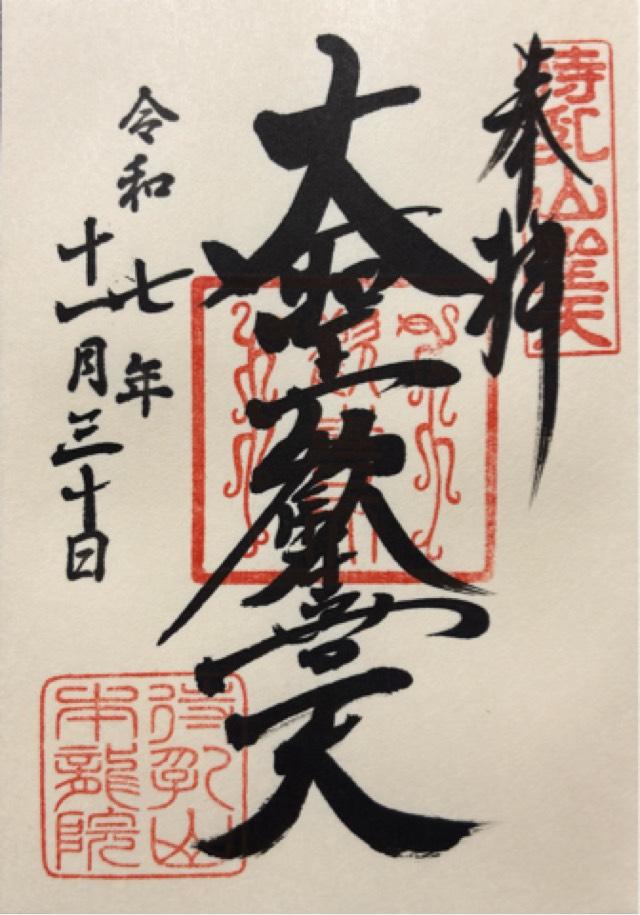 奉拝
待乳山聖天
大聖歡喜天
令和七年
十一月三十日
待乳山
本龍院